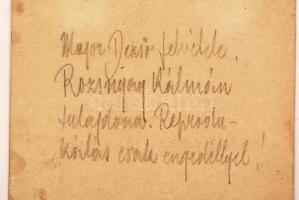 Major Dezső felvétele.
Rozsnyay Kálmán
tulajdona. Reprodu-
kálás csak engedéllyel!